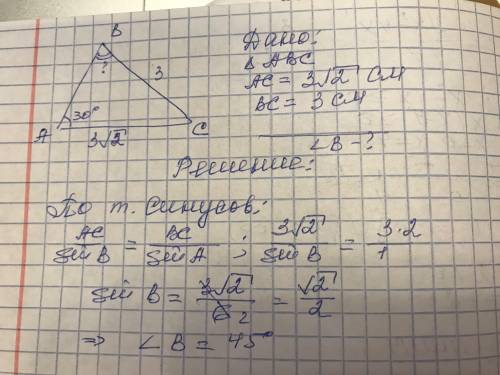 B
?
3
30°
A
C
3√2
Дано:
Δ ABC
AC = 3√2 см
BC = 3 см
∠B - ?
Решение:
По т. синусов:
AC / sin B = BC / sin A ; 3√2 / sin B = 3·2 / 1
sin B = 3√2 / 6 2 = √2 / 2
⇒ ∠B = 45°